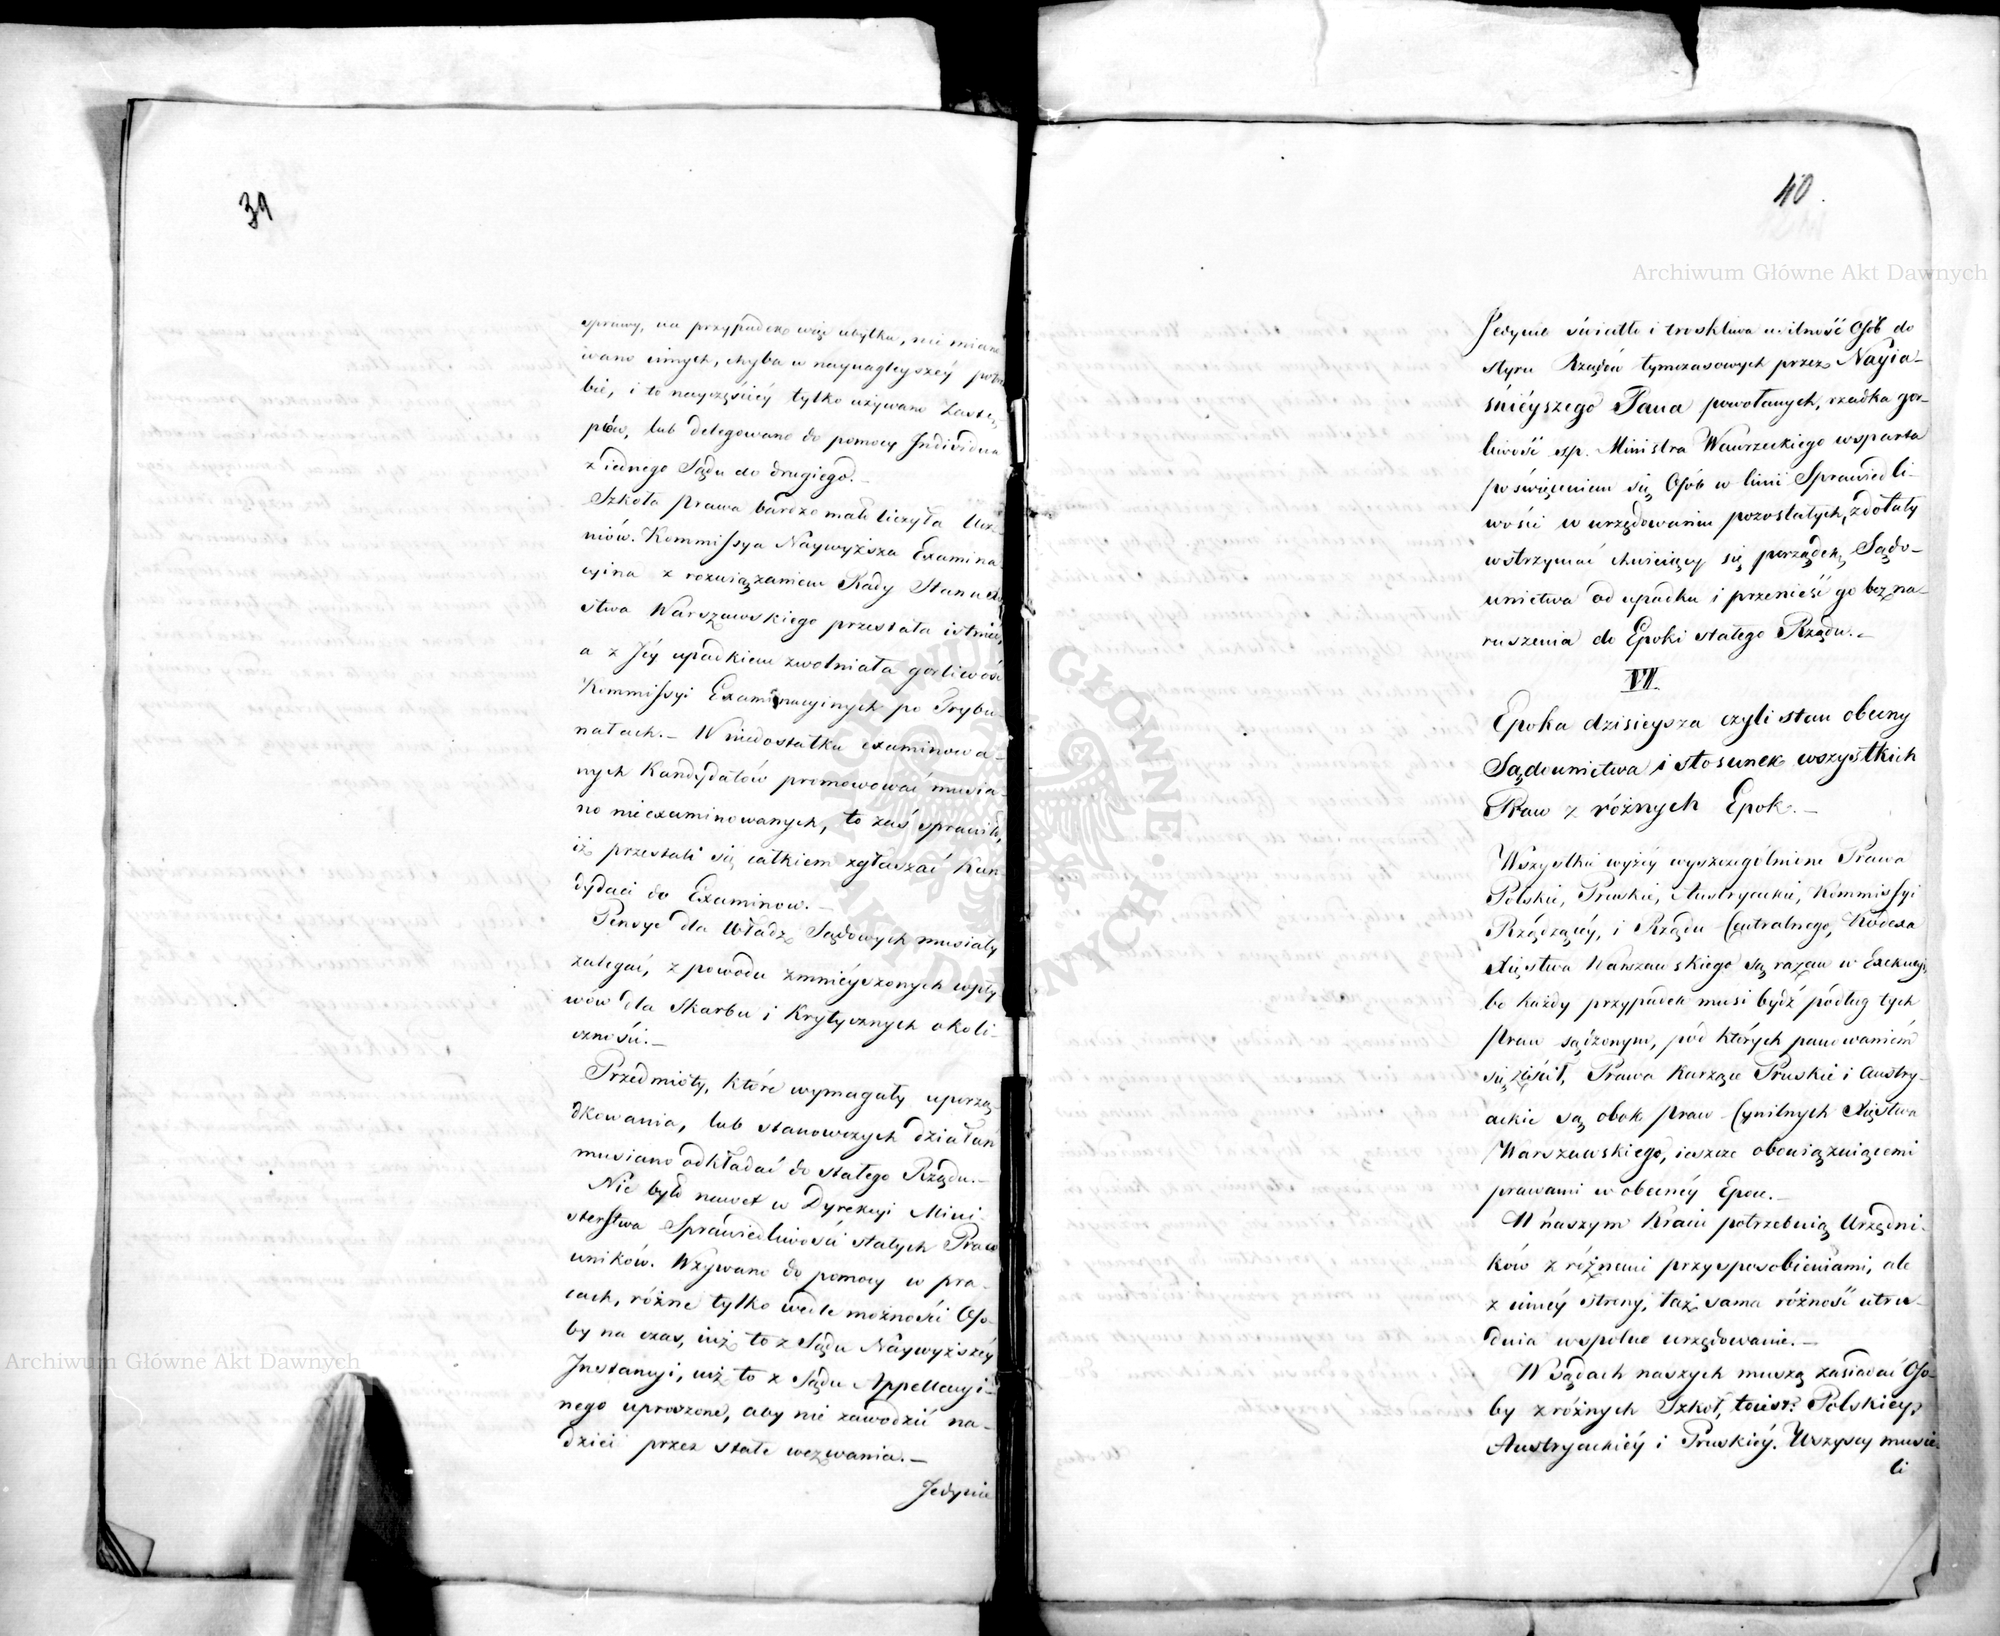 39
sprawy, na przypadek więc ubytku, nie miano
wano innych, chyba w naynagleyszéy potrze
bie, i to nayczęściéy tylko używano Zastę
pców, lub delegowano do pomocy Individua
z iednego Sądu do drugiego.—
Szkoła prawa bardzo mało liczyła Ucz
niów. Kommissya Naywyższa Examina
cyina z rozwiązaniem Rady Stanu Xię
stwa Warszawskiego przestała istnieć,
a z Jéy upadkiem zwolniała gorliwość
Kommissyi Examinacyinych po Trybu
nałach.— W niedostatku examinowa
nych Kandydatów promowować musia
no nieexaminowanych, to zaś sprawiło,
iż przestali się całkiem zgłaszać Kan
dydaci do Examinow.—
Pensye dla Władz Sądowych musiały
zalegać, z powodu zmnieyszonych wpły
wów dla Skarbu i Krytycznych okoli-
czności.—
Przedmioty, które wymagały uporzą
dkowania, lub stanowczych działań
musiano odkładać do stałego Rządu.—
Nie było nawet w Dyrekcyi Mini-
sterstwa Sprawiedliwości stałych Praco
wników. Wzywano do pomocy w pra-
cach, różne tylko wedle możności Oso-
by na czas, iuż to z Sądu Naywyższéy
Instancyi, iuż to z Sądu Appellacyi-
nego uproszone, aby nie zawodzić na-
dziei przez stałe wezwania.—
Jedynie
40.
Archiwum Główne Akt Dawnych
Jedynie światło i troskliwa usilność Osób do
styru Rządów tymczasowych przez Nayia-
śnieyszego Pana powołanych, rzadka gor-
liwość śp. Ministra Wawrzeckiego wsparta
poświęceniem się Osób w linii Sprawiedli-
wości w urzędowaniu pozostałych, zdołały
wstrzymać chwieiący się porządek Sądo-
wnictwa od upadku i przenieść go bez na-
ruszenia do Epoki stałego Rządu.—
VI.
Epoka dzisieysza czyli stan obecny
Sądownictwa i stosunek wszystkich
Praw z różnych Epok.—
Wszystkie wyżéy wyszczególnione Prawa
Polskie, Pruskie, Austryackie, Kommissyi
Rządzącéy, i Rządu Centralnego, Kodexa
Xięstwa Warszawskiego są razem w Exekucyi,
bo każdy przypadek musi bydź podług tych
praw sądzonym, pod których panowaniem
się ziścił, Prawa Karzące Pruskie i Austry-
ackie są obok praw Cywilnych Xięstwa
Warszawskiego, ieszcze obowiązuiącemi
prawami w obecnéy Epoce.—
W naszym Kraiu potrzebuią Urzędni-
ków z różnemi przysposobieniami, ale
z innéy strony, taż sama różność utru-
dnia wspólne urzędowanie.—
W Sądach naszych muszą zasiadać Oso-
by z różnych Szkół, toiest: Polskiey,
Austryackiéy i Pruskiéy. Wszyscy musie-
li
Archiwum Główne Akt Dawnych
ARCHIWUM GŁÓWNE AKT DAWNYCH